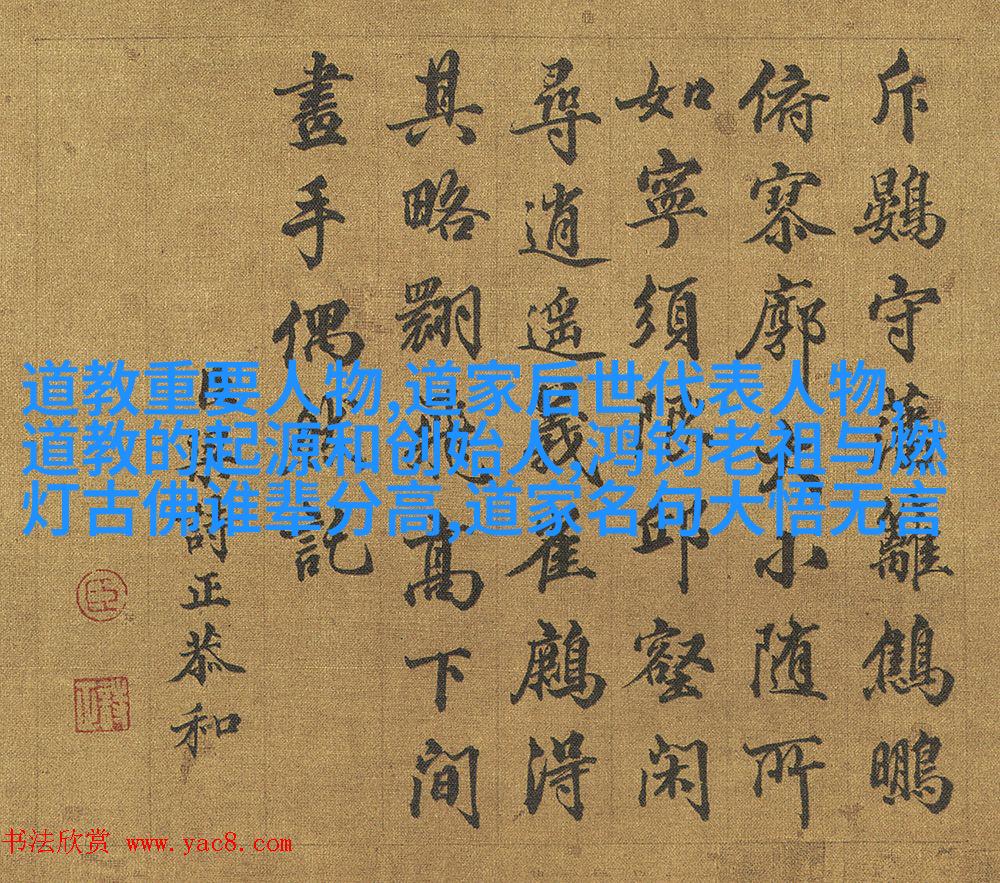 斥鷃守藩籬鷦鵬
俯寥廓大小随所
如寧須邱壑閑
尋逍遥雀鷹得
其略翾飛高下間
畫手偶能託
臣梁詩正恭和
臣
道教重要人物,道家后世代表人物,
道教的起源和创始人,鸿钧老祖与燃
灯古佛谁辈分高,道家名句大悟无言
书法欣赏 www.yac8.com